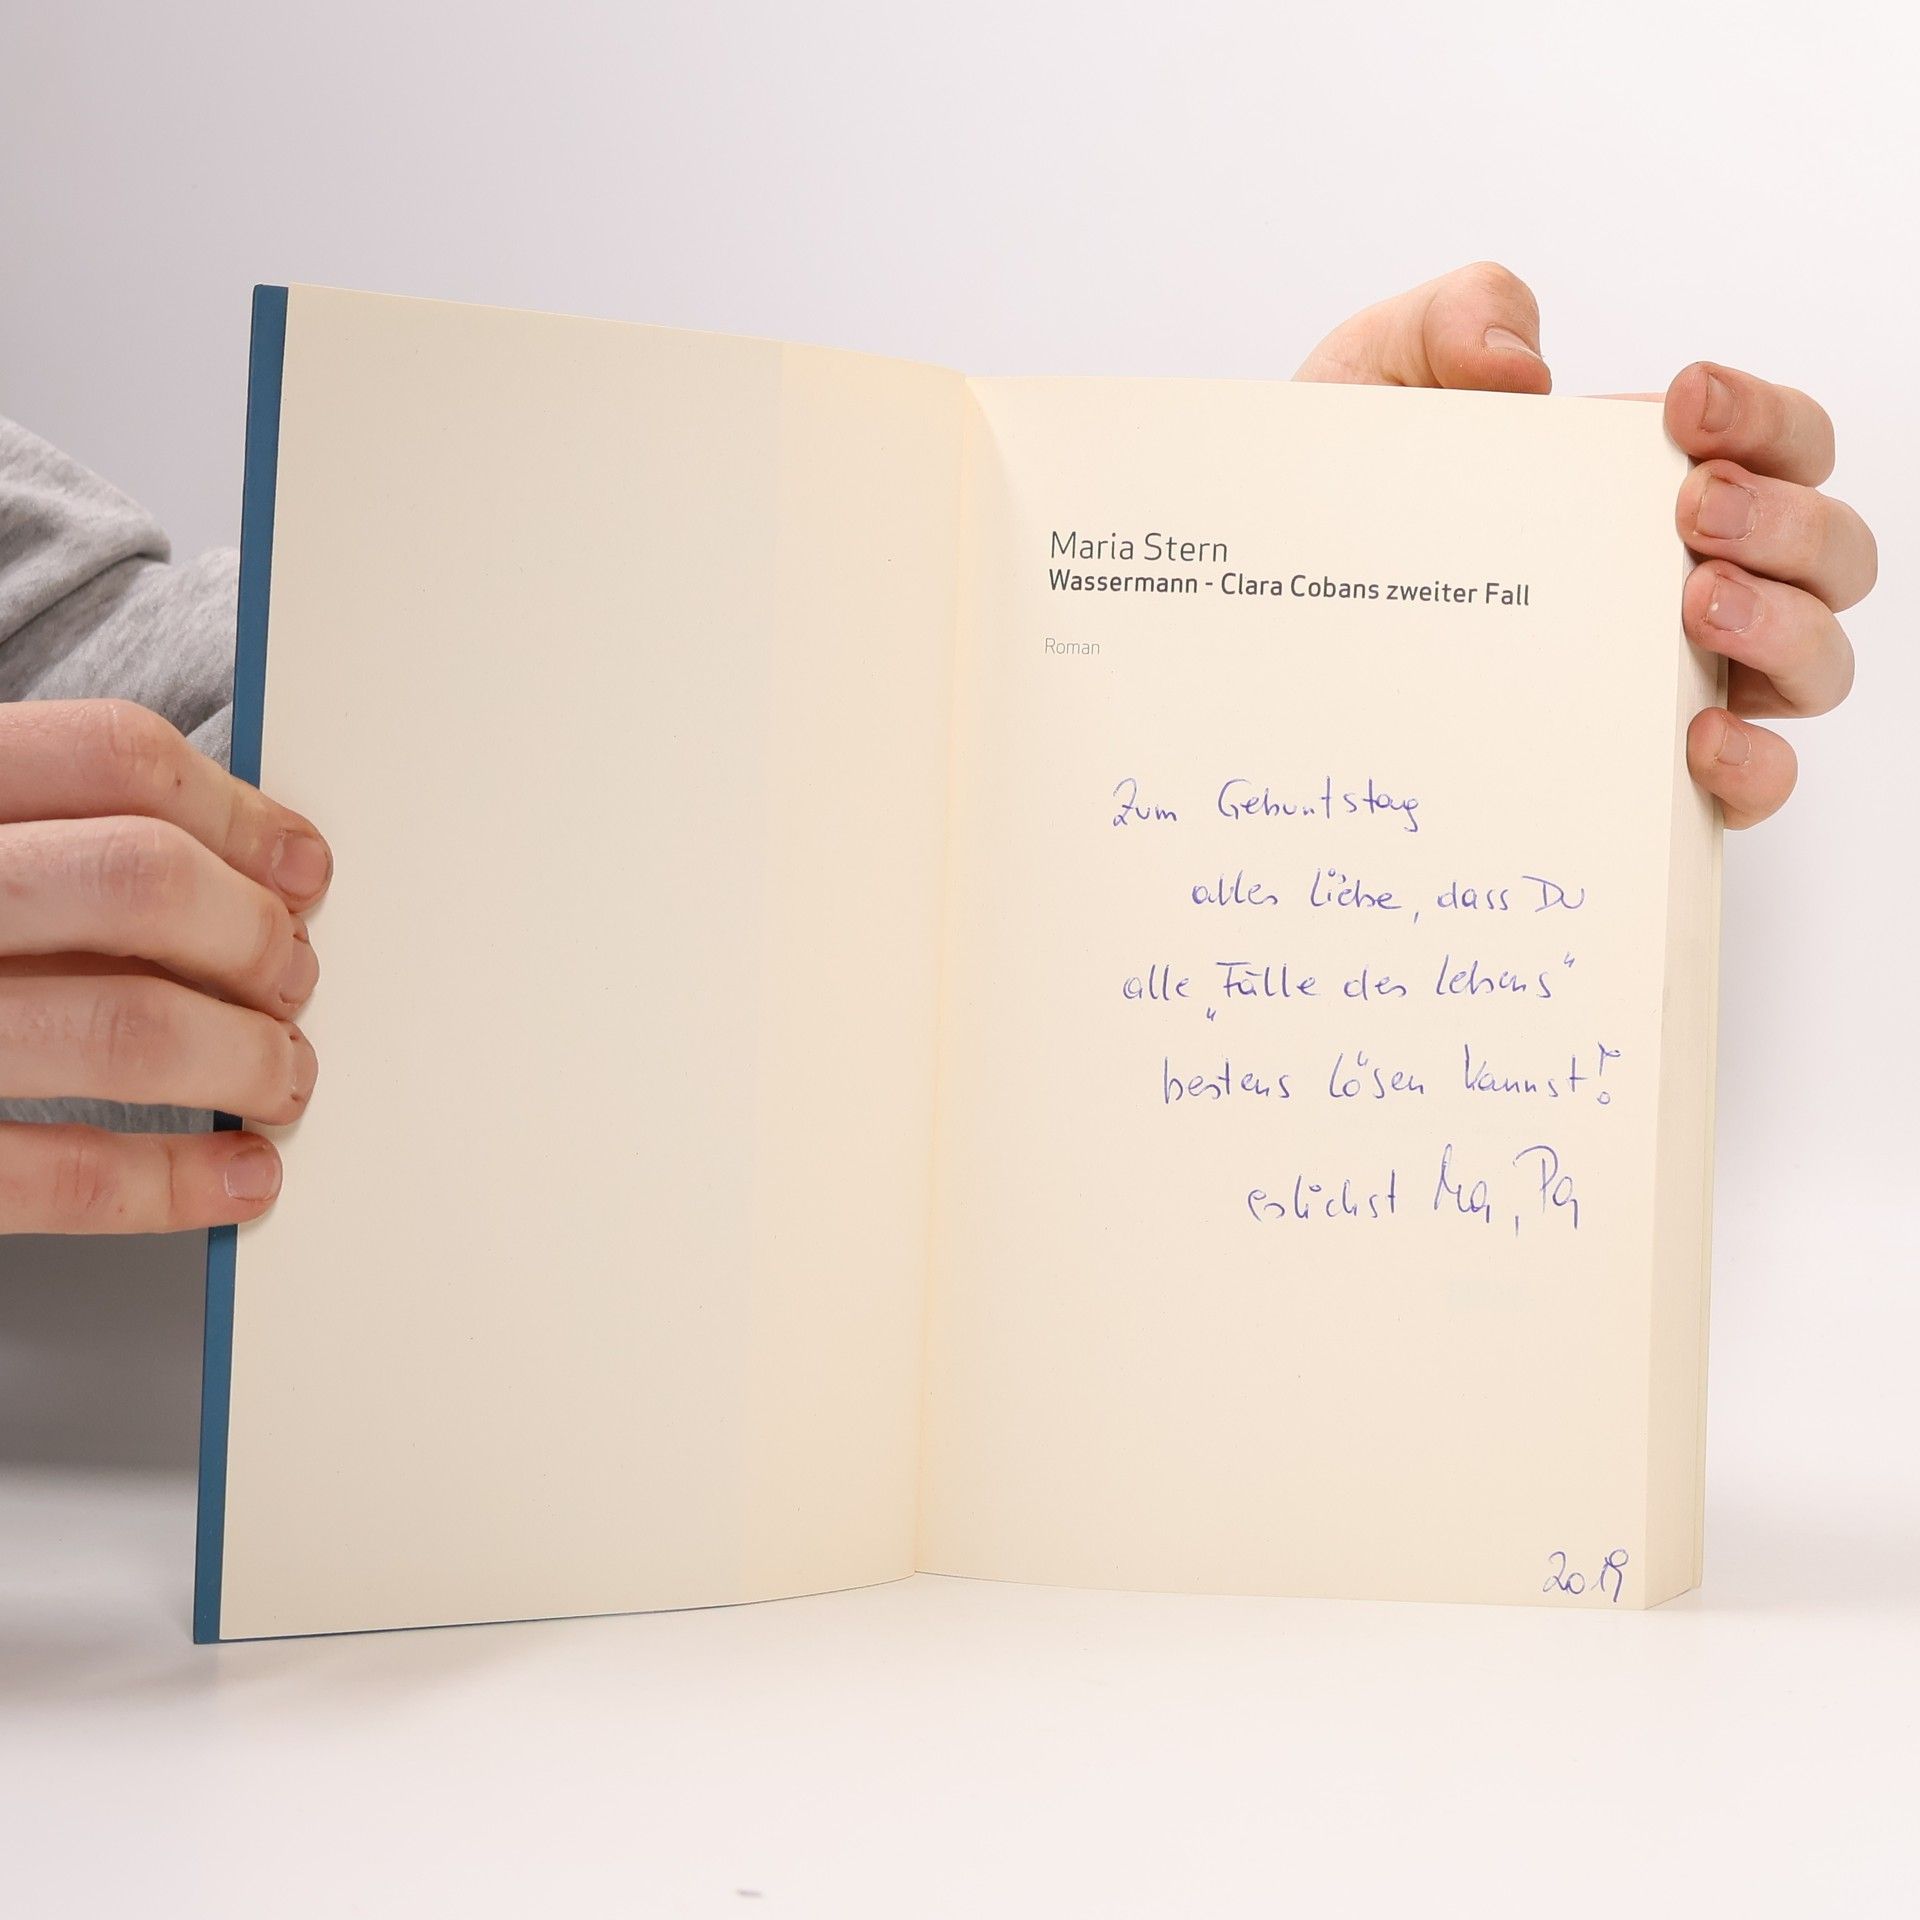 Maria Stern
Wassermann - Clara Cobans zweiter Fall
Roman
Zum Geburtstag
alles Liebe, dass Du
alle „Fälle des Lebens“
bestens lösen kannst!
Ma, Pa
2019